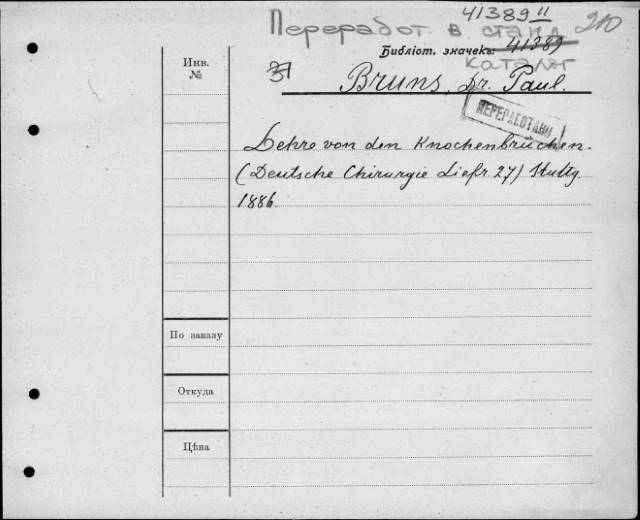 41389 II
Переработ. в станд 210
Библіот. значекъ: 41389
каталог
Инв.
№
Bruns, Dr. Paul.
ПЕРЕРАБОТАНО
Lehre von den Knochenbrüchen.
(Deutsche Chirurgie Liefr 27) Stuttg.
1886.
По заказу
Откуда
Цѣна